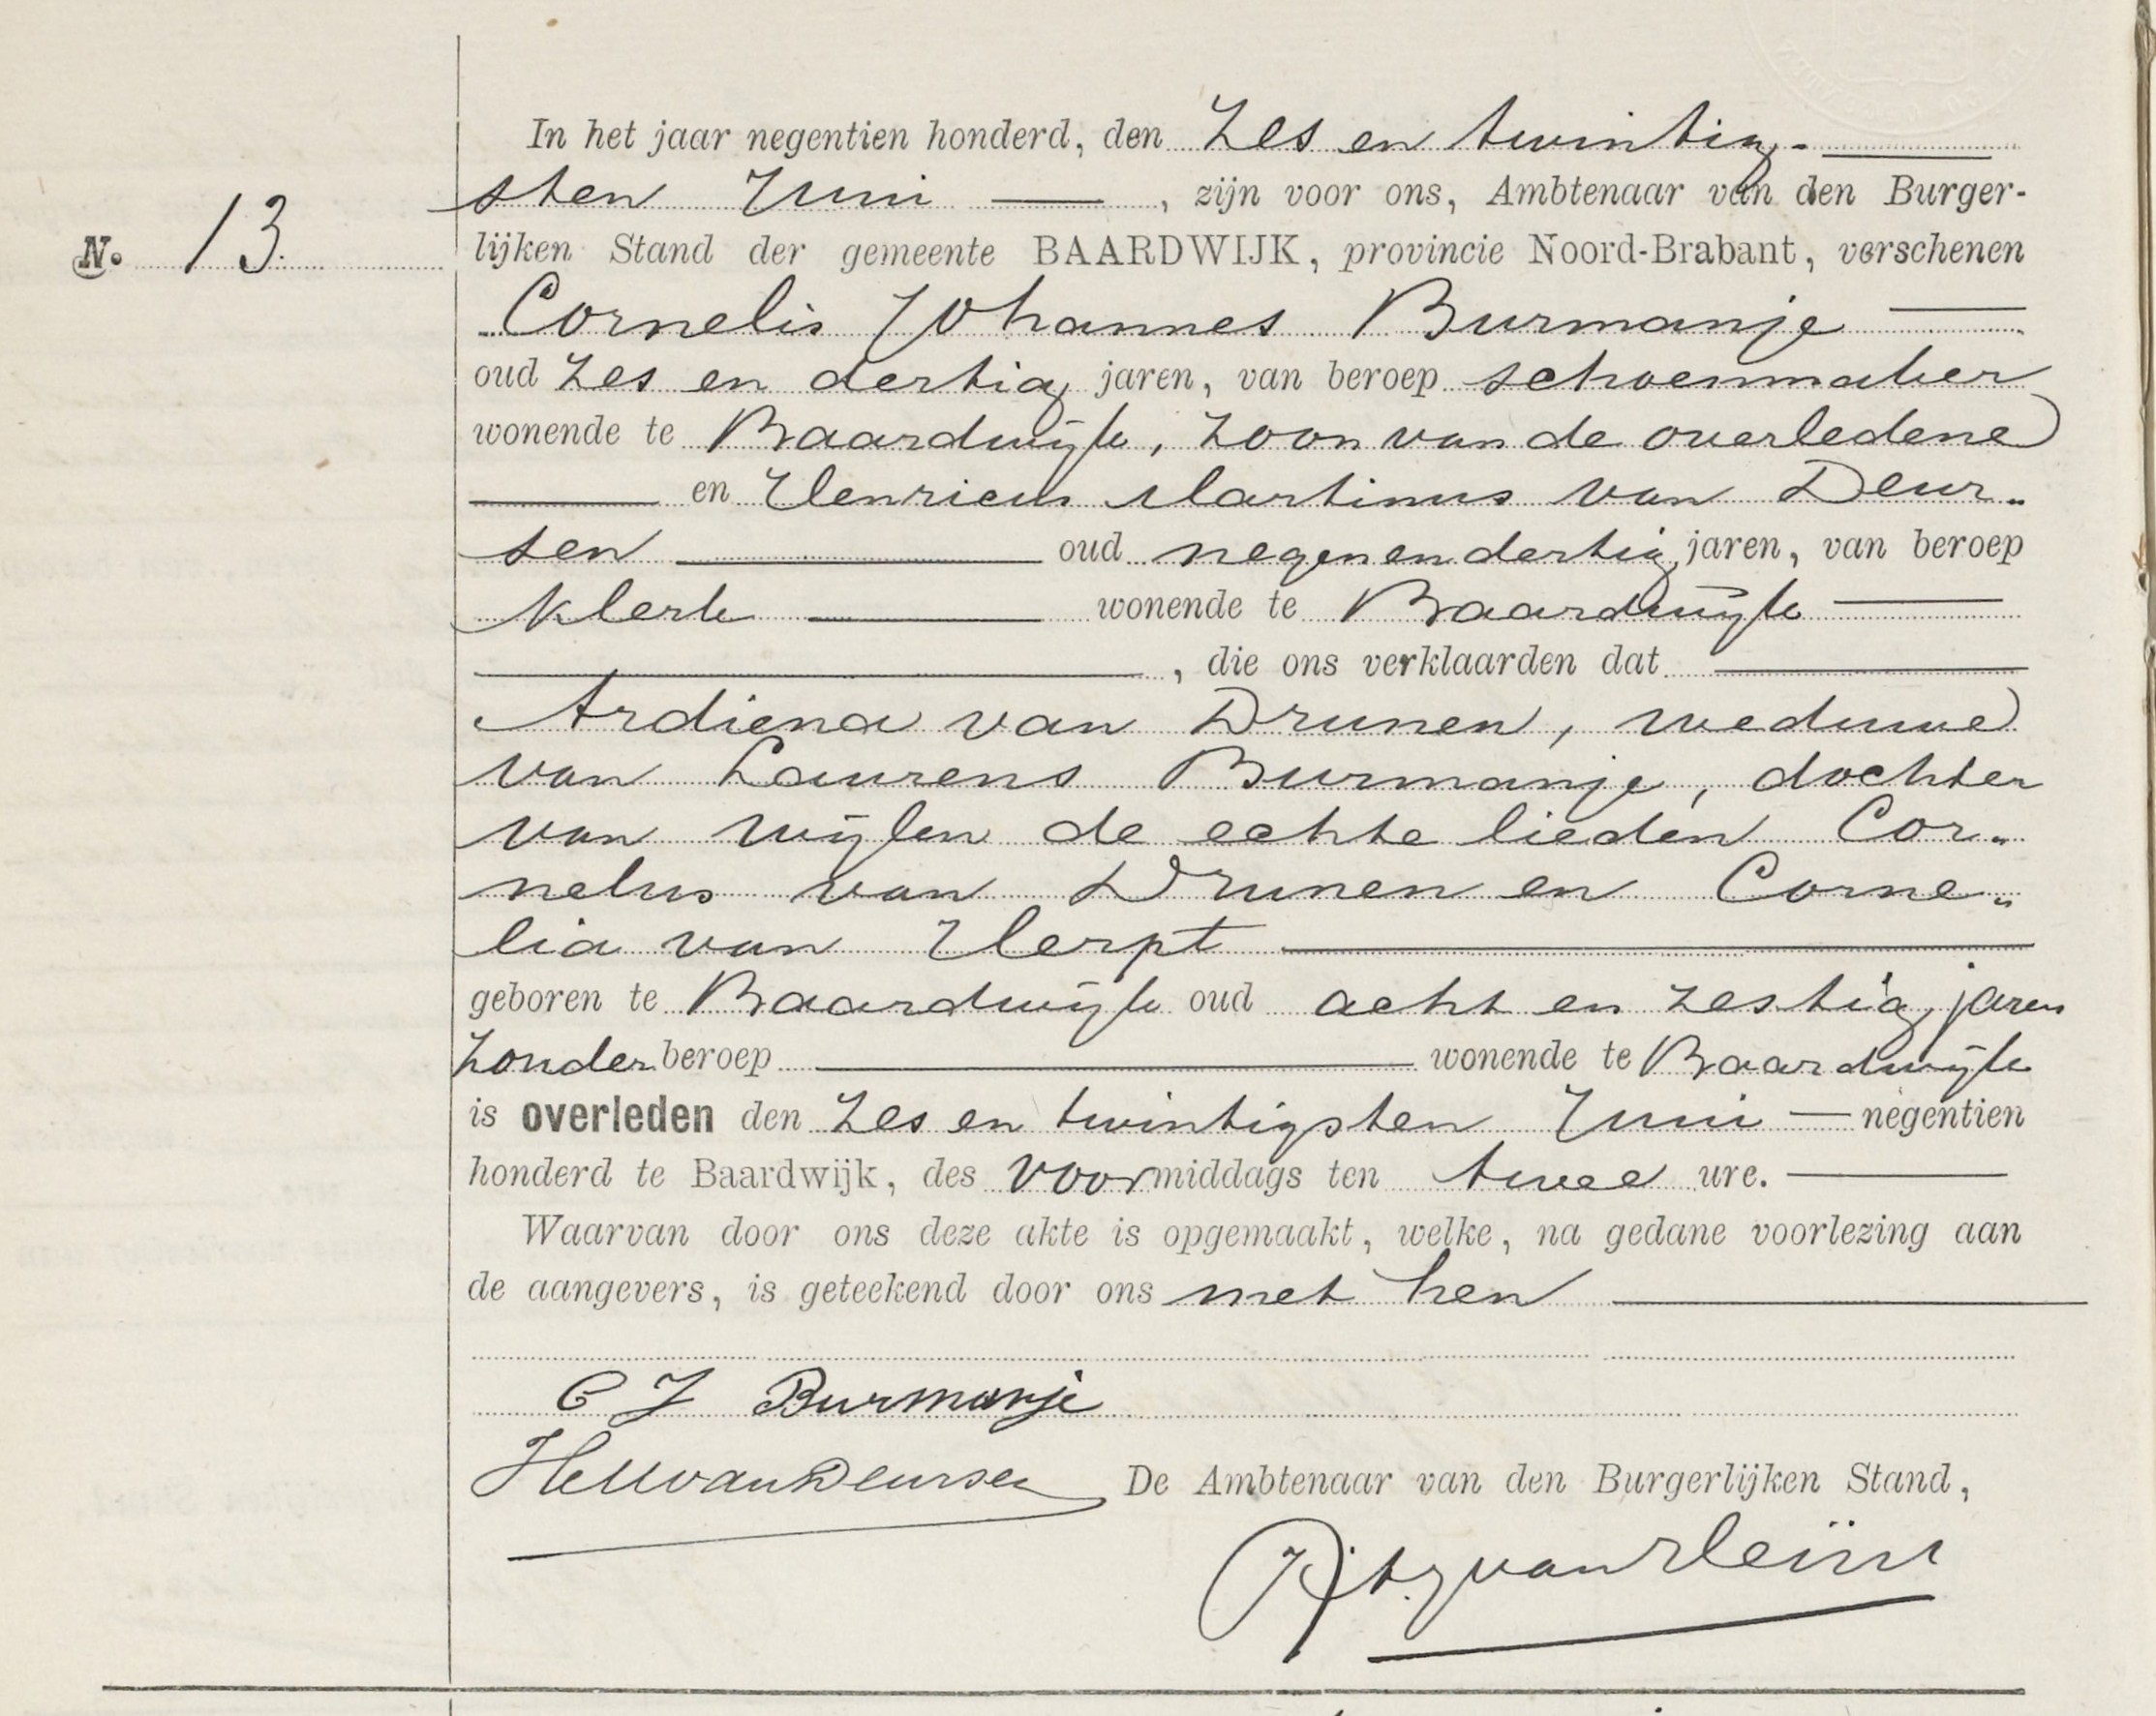 In het jaar negentien honderd, den Zes en twintig-
sten Juni, zijn voor ons, Ambtenaar van den Burger-
No. 13.
lijken Stand der gemeente BAARDWIJK, provincie Noord-Brabant, verschenen
Cornelis Johannes Burmanje
oud Zes en dertig jaren, van beroep schoenmaker
wonende te Baardwijk, Zoon van de overledene
en Henricus Martinus van Deur-
sen oud negen en dertig jaren, van beroep
klerk wonende te Baardwijk
, die ons verklaarden dat
Ardiena van Drunen, weduwe
van Laurens Burmanje, dochter
van wijlen de echte lieden Cor-
nelus van Drunen en Corne-
lia van Herpt
geboren te Baardwijk oud acht en zestig jaren
Zonder beroep wonende te Baardwijk
is overleden den Zes en twintigsten Juni negentien
honderd te Baardwijk, des voormiddags ten twee ure.
Waarvan door ons deze akte is opgemaakt, welke, na gedane voorlezing aan
de aangevers, is geteekend door ons met hen
C J Burmanje
HM van Deursen
De Ambtenaar van den Burgerlijken Stand,